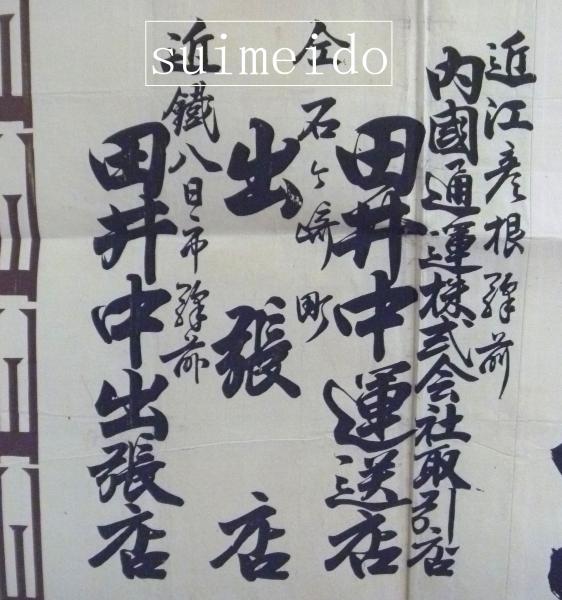 近江彦根驛前
内國通運株式会社取引店
田井中運送店
仝石ヶ崎町
出張店
近鐵八日市驛前
田井中出張店
suimeido